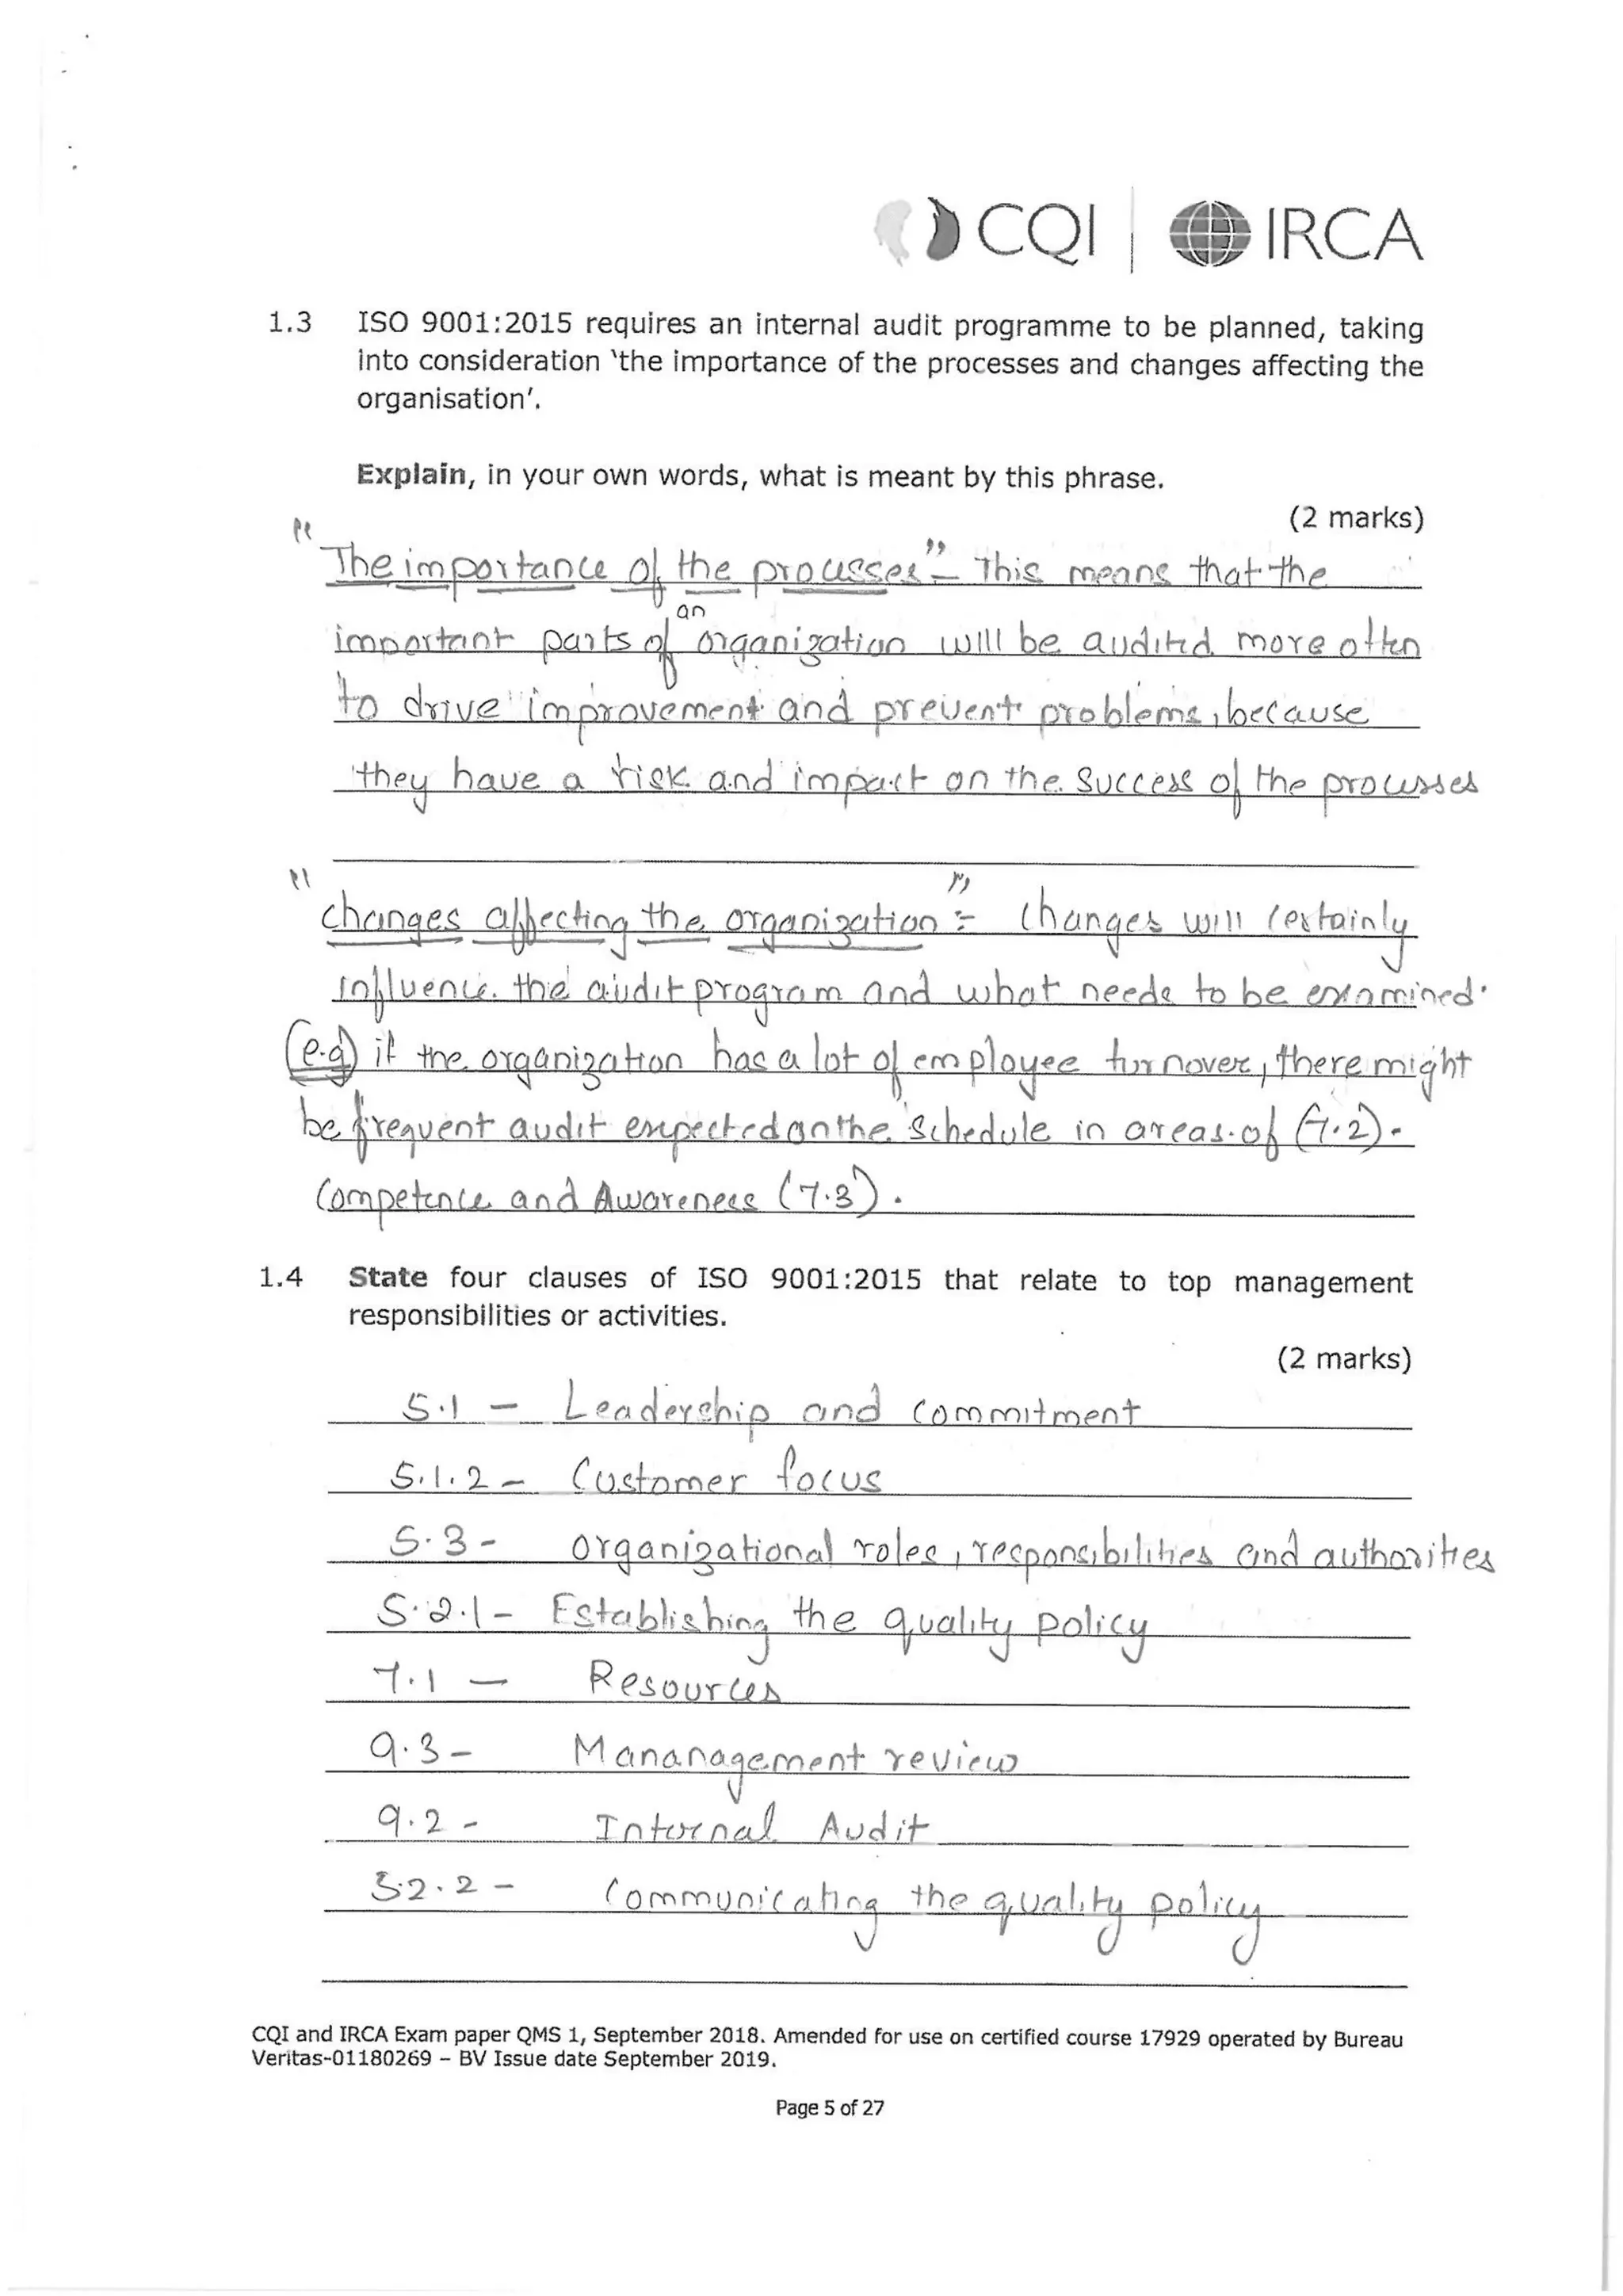 CQI | IRCA
1.3 ISO 9001:2015 requires an internal audit programme to be planned, taking
into consideration 'the importance of the processes and changes affecting the
organisation'.
Explain, in your own words, what is meant by this phrase.
(2 marks)
"The importance of the processes" - This means that the
important parts of an organization will be audited more often
to drive improvement and prevent problems, because
they have a risk and impact on the success of the processes
"changes affecting the organization" :- changes will certainly
influence the audit program and what needs to be examined.
(e.g) if the organization has a lot of employee turnover, there might
be frequent audit expected on the schedule in areas of (7.2) -
Competence and Awareness (7.3).
1.4 State four clauses of ISO 9001:2015 that relate to top management
responsibilities or activities.
(2 marks)
5.1 - Leadership and commitment
5.1.2 - Customer focus
5.3 - organizational roles, responsibilities and authorities
5.2.1 - Establishing the quality policy
7.1 - Resources
9.3 - Mananagement review
9.2 - Internal Audit
5.2.2 - Communicating the quality policy
CQI and IRCA Exam paper QMS 1, September 2018. Amended for use on certified course 17929 operated by Bureau
Veritas-01180269 – BV Issue date September 2019.
Page 5 of 27